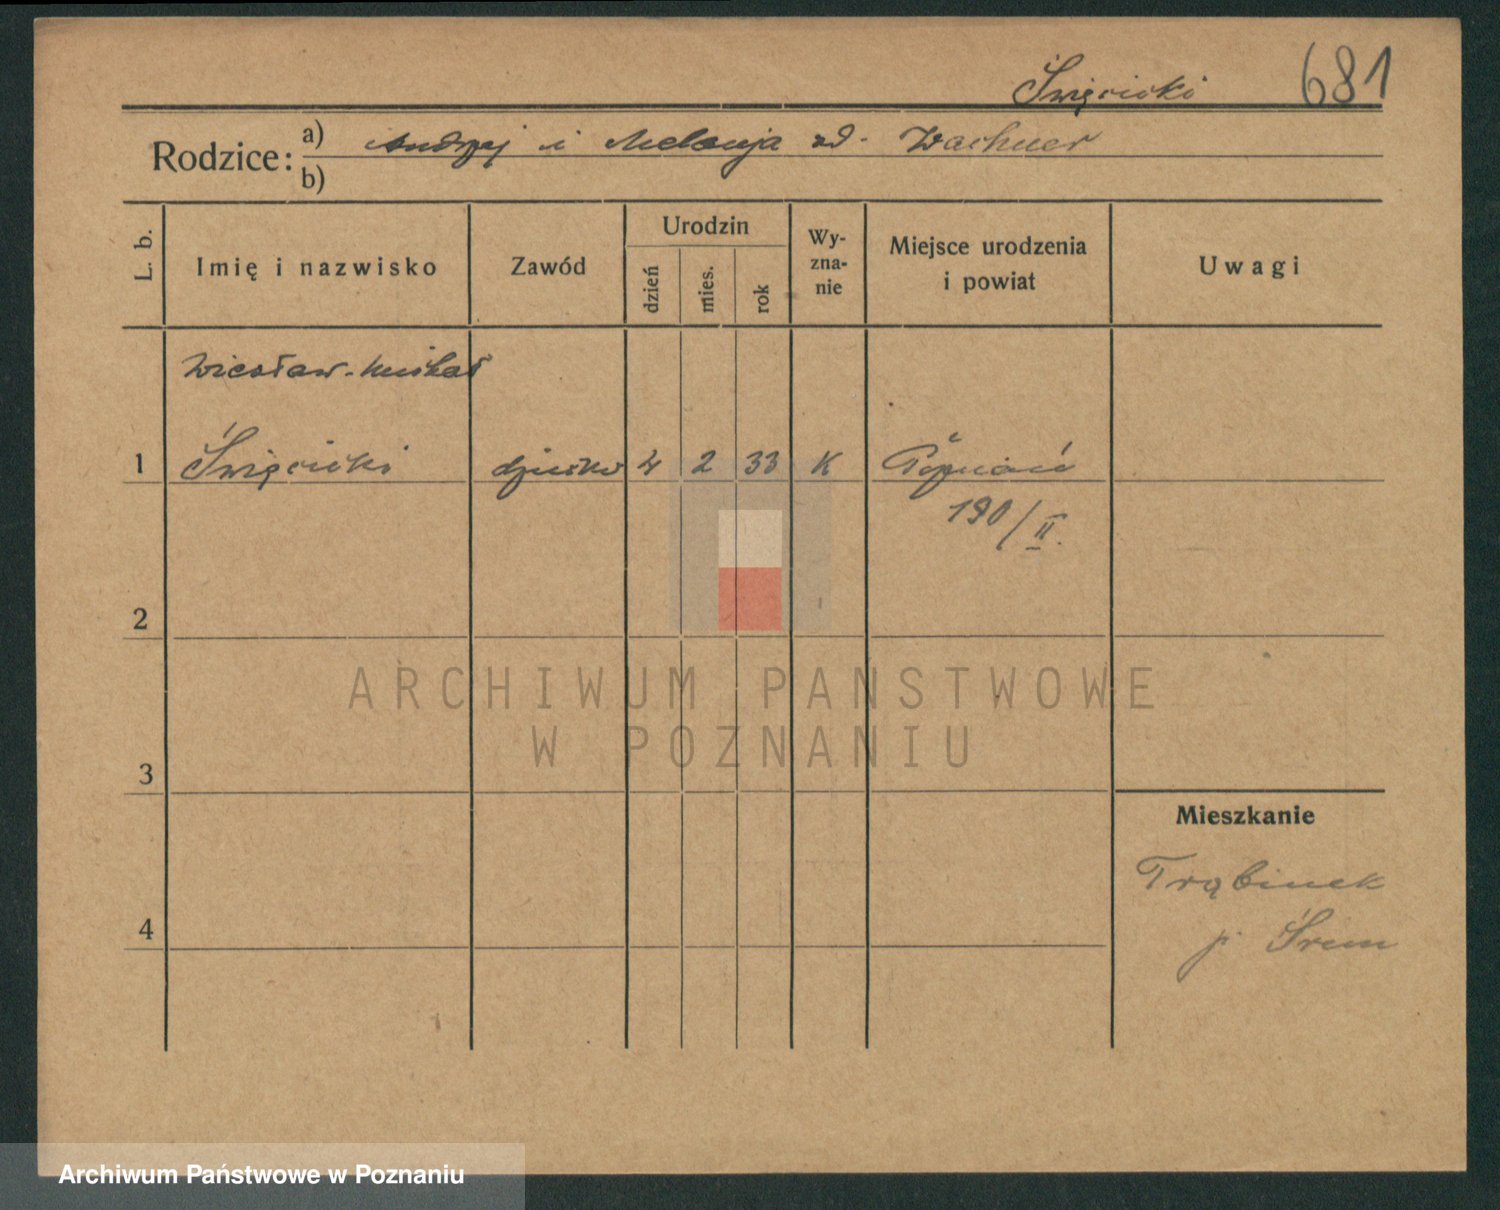 Święcicki 681
Rodzice: a) Andrzej i Melanja zd. Wachner
b)
L. b. Imię i nazwisko Zawód Urodzin dzień mies. rok Wy-zna-nie Miejsce urodzenia i powiat Uwagi
Wiesław-Michał
1 Święcicki dziecko 4 2 33 K Poznań
190/II.
2
3
Mieszkanie
Trąbinek
p. Śrem
4
ARCHIWUM PAŃSTWOWE
W POZNANIU
Archiwum Państwowe w Poznaniu